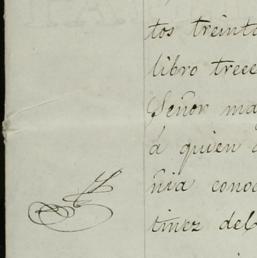 tos treinta
libro trece
Señor ma
á quien
nia conoc
tinez del